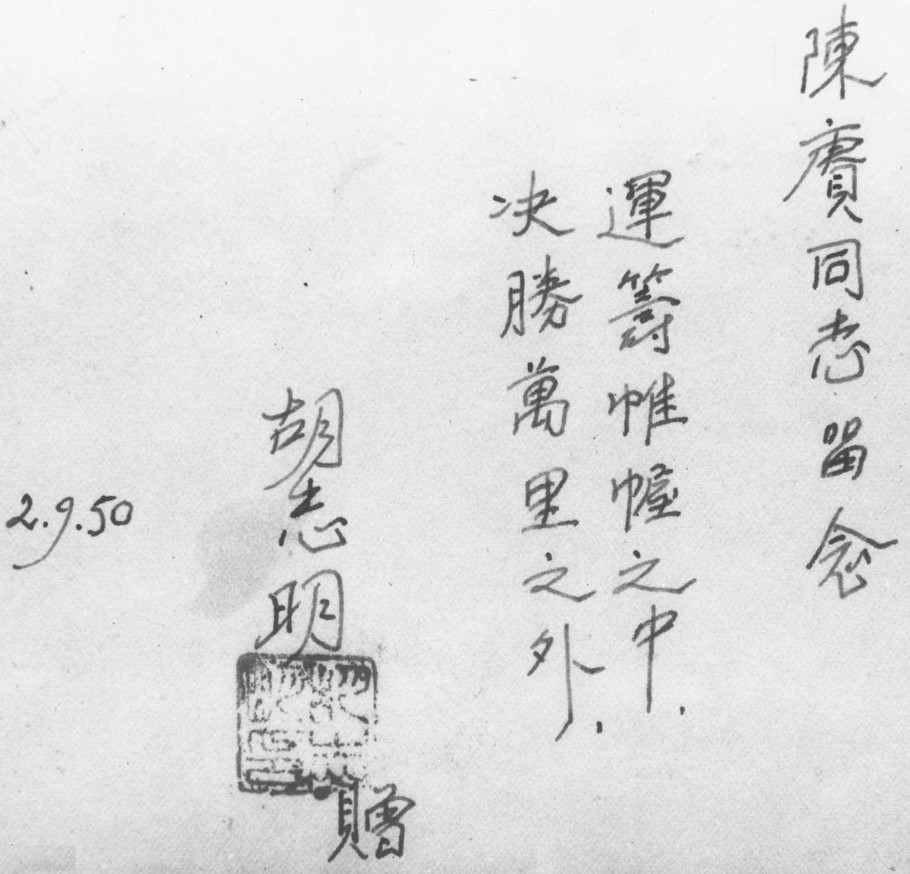 陳賡同志留念
運籌帷幄之中.
决勝萬里之外.
胡志明
贈
2.9.50